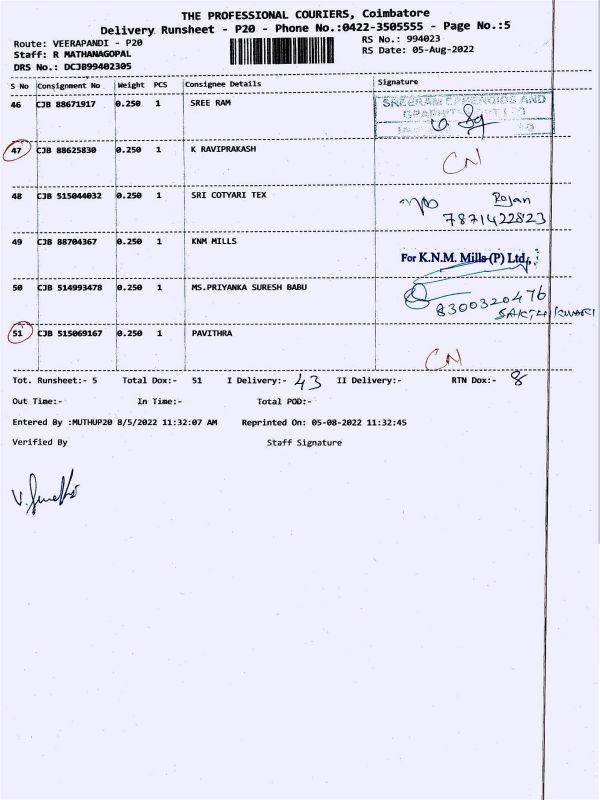 THE PROFESSIONAL COURIERS, Coimbatore
Delivery Runsheet - P20 - Phone No.:0422-3505555 - Page No.:5
Route: VEERAPANDI - P20 RS No.: 994023
Staff: R MATHANAGOPAL RS Date: 05-Aug-2022
DRS No.: DCJB99402305
S No Consignment No Weight PCS Consignee Details Signature
46 CJB 88671917 0.250 1 SREE RAM
SREERAM
47 CJB 88625830 0.250 1 K RAVIPRAKASH CN
48 CJB 515044032 0.250 1 SRI COTYARI TEX Rojan
7871422823
49 CJB 88704367 0.250 1 KNM MILLS
For K.N.M. Mills (P) Ltd.,
50 CJB 514993478 0.250 1 MS.PRIYANKA SURESH BABU
8300320476
51 CJB 515069167 0.250 1 PAVITHRA CN
Tot. Runsheet:- 5 Total Dox:- 51 I Delivery:- 43 II Delivery:- RTN Dox:- 8
Out Time:- In Time:- Total POD:-
Entered By :MUTHUP20 8/5/2022 11:32:07 AM Reprinted On: 05-08-2022 11:32:45
Verified By Staff Signature